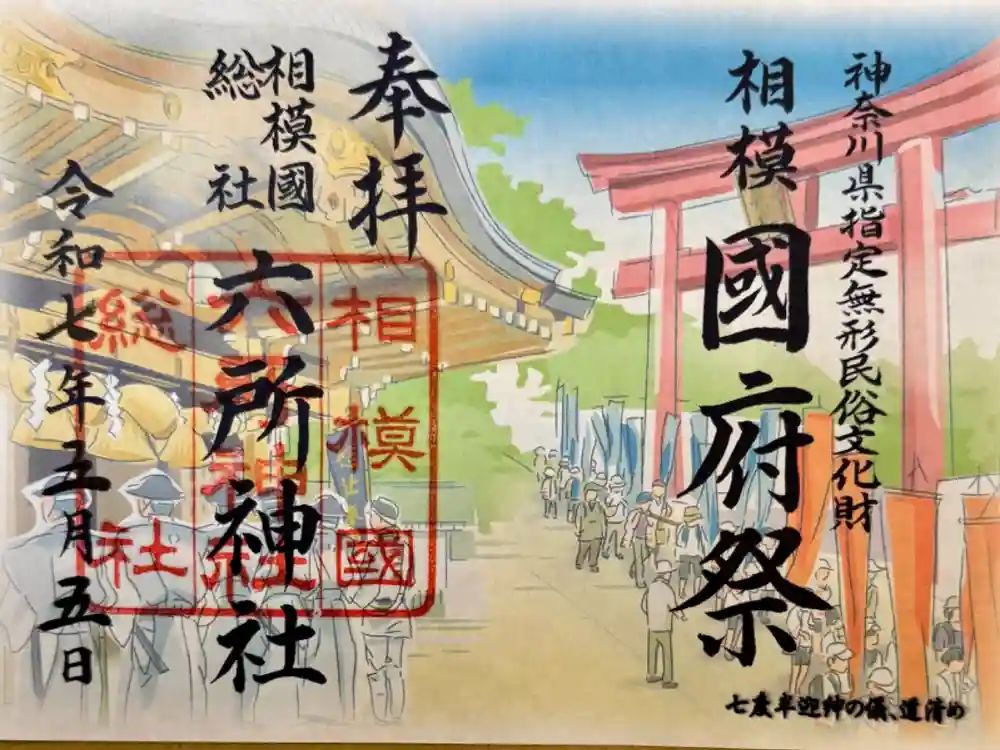 神奈川県指定無形民俗文化財
相模
國府祭
七度半迎神の儀、道清め
奉拝
相模國
総社
六所神社
令和七年五月五日
相模國
六所神社
総社